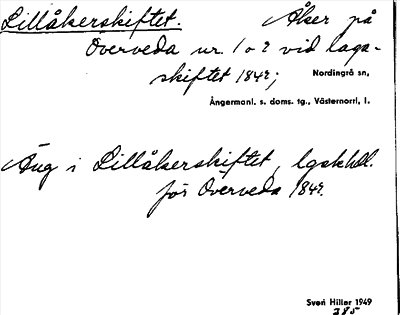 Lillåkerskiftet. Åker på
Överveda nr 1 o 2 vid laga-
skiftet 1842;
Nordingrå sn,
Ångermanl. s. doms. tg., Västernorrl, l.
Äng i Lillåkerskiftet, lgskhdl.
för Överveda 1842.
Sven Hiller 1949
285